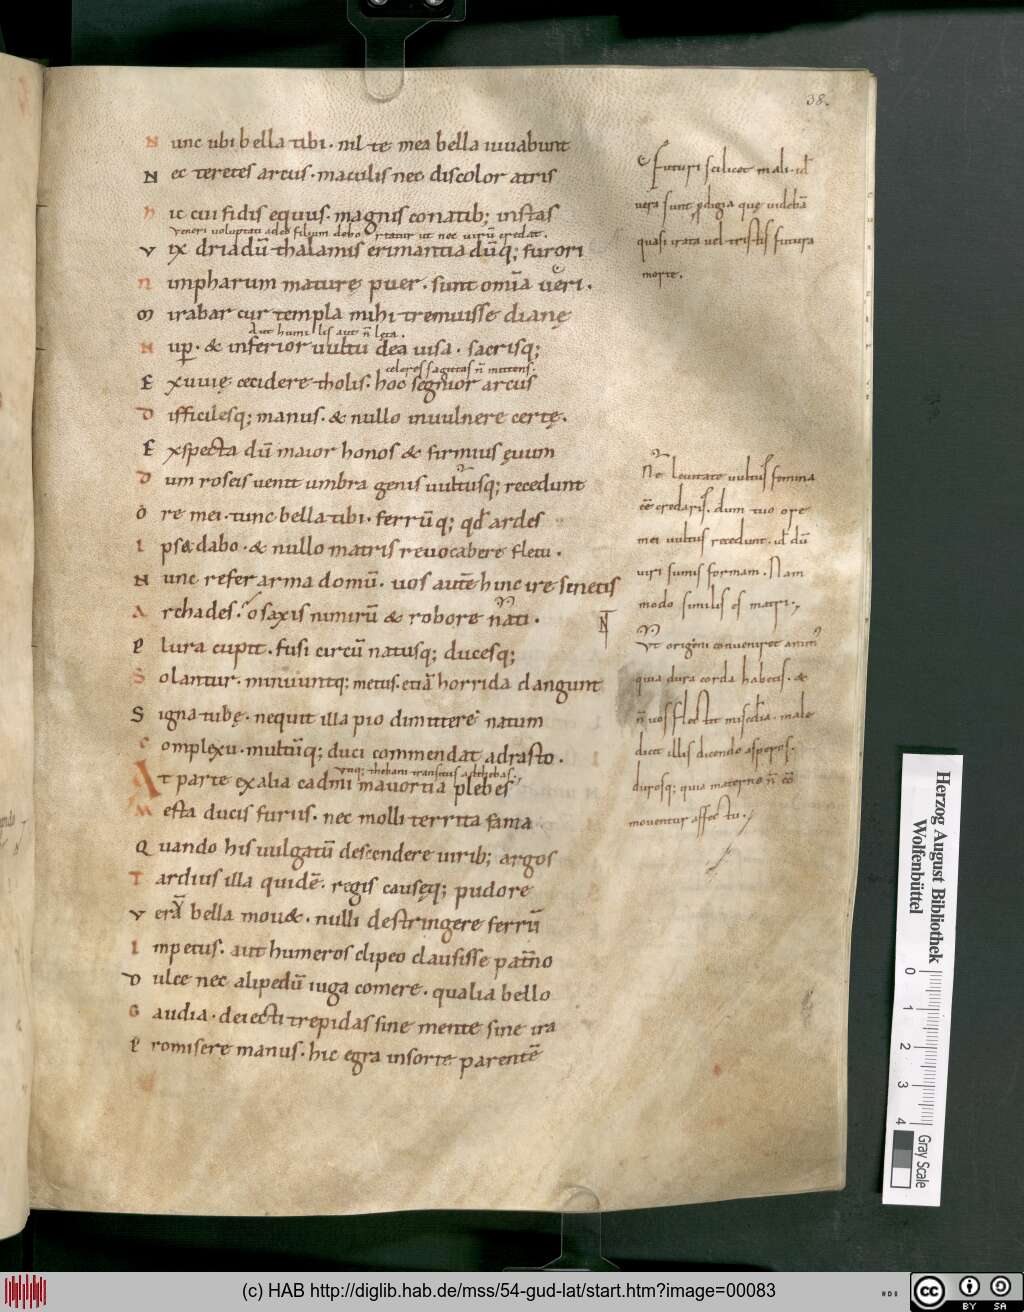 38.
Nunc ubi bella tibi. nil te mea bella iuuabunt
Nec teretes arcus. maculis nec discolor atris
Hic cui fidis equus. magnis conatib; instas
Veneri voluptati adeo filium debo rtatur ut nec uirū credat.
Vix driadū thalamis erimantia dūq; furori
Nimpharum maturę puer. sunt omīa ueri.
Mirabar cur templa mihi tremuisse dianę
Aut humilis aut n̄ lęta.
Nup. & inferior uultu dea uisa. sacrisq;
celeres sagittas n̄ mittens.
Exuuię cecidere tholis. hoc segnior arcus
Difficilesq; manus. & nullo inuulnere certę.
Exspecta dū maior honos & firmius ęuum
Dum roseis uenit umbra genis uultusq; recedunt
Ore mei. tunc bella tibi. ferrūq; qđ ardes
Ipse dabo. & nullo matris reuocabere fletu.
Nunc refer arma domū. uos autē hinc ire sinetis
Archades. o saxis nimirū & robore nati.
Plura cupit. fusi circū natusq; ducesq;
Solantur. minuuntq; metus. etiā horrida clangunt
Signa tubę. nequit illa pio dimittere natum
Complexu. multūq; duci commendat adrasto.
Unq; thebani transitus ad thebas.
At parte ex alia cadmi mauortia plebes
Mesta ducis furiis. nec molli territa fama
Quando his uulgatū descendere uirib; argos
Tardius illa quidē. regis causęq; pudore
Verū bella mou&. nulli destringere ferrū
Impetus. aut humeros clipeo clausisse pat̄no
Dulce nec alipedū iuga comere. qualia bello
Gaudia. deiecti trepidas sine mente sine ira
Promisere manus. hic egra insorte parentē
Futuri scilicet mali. id
uera sunt pdigia quę uidebā
quasi irata uel tristis futura
morte.
Ne leuitate uultus femina
eē credaris. dum tuo ore
mei uultus recedunt. id dū
uiri sumis formam. Nam
modo similis es matri.
Vt origini conueniret animꝰ
quia dura corda habetis. &
n̄ uos flectit miscđia. male
dicit illis dicendo asperos.
durosq; quia materno n̄ cō
mouentur affectu.
Herzog August Bibliothek
Wolfenbüttel
0 1 2 3 4
Gray Scale
(c) HAB http://diglib.hab.de/mss/54-gud-lat/start.htm?image=00083
cc BY SA